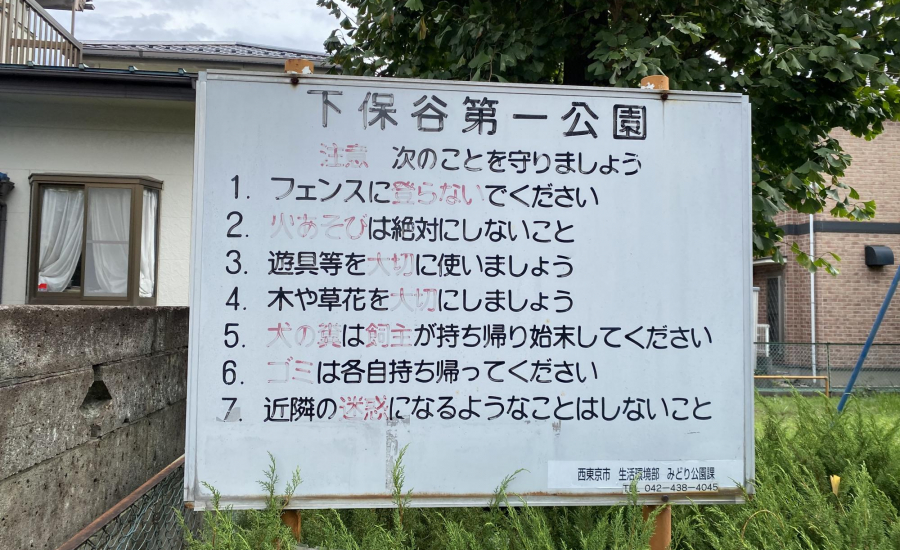 下保谷第一公園
注意 次のことを守りましょう
1. フェンスに登らないでください
2. 火あそびは絶対にしないこと
3. 遊具等を大切に使いましょう
4. 木や草花を大切にしましょう
5. 犬の糞は飼主が持ち帰り始末してください
6. ゴミは各自持ち帰ってください
7. 近隣の迷惑になるようなことはしないこと
西東京市 生活環境部 みどり公園課
TEL 042-438-4045